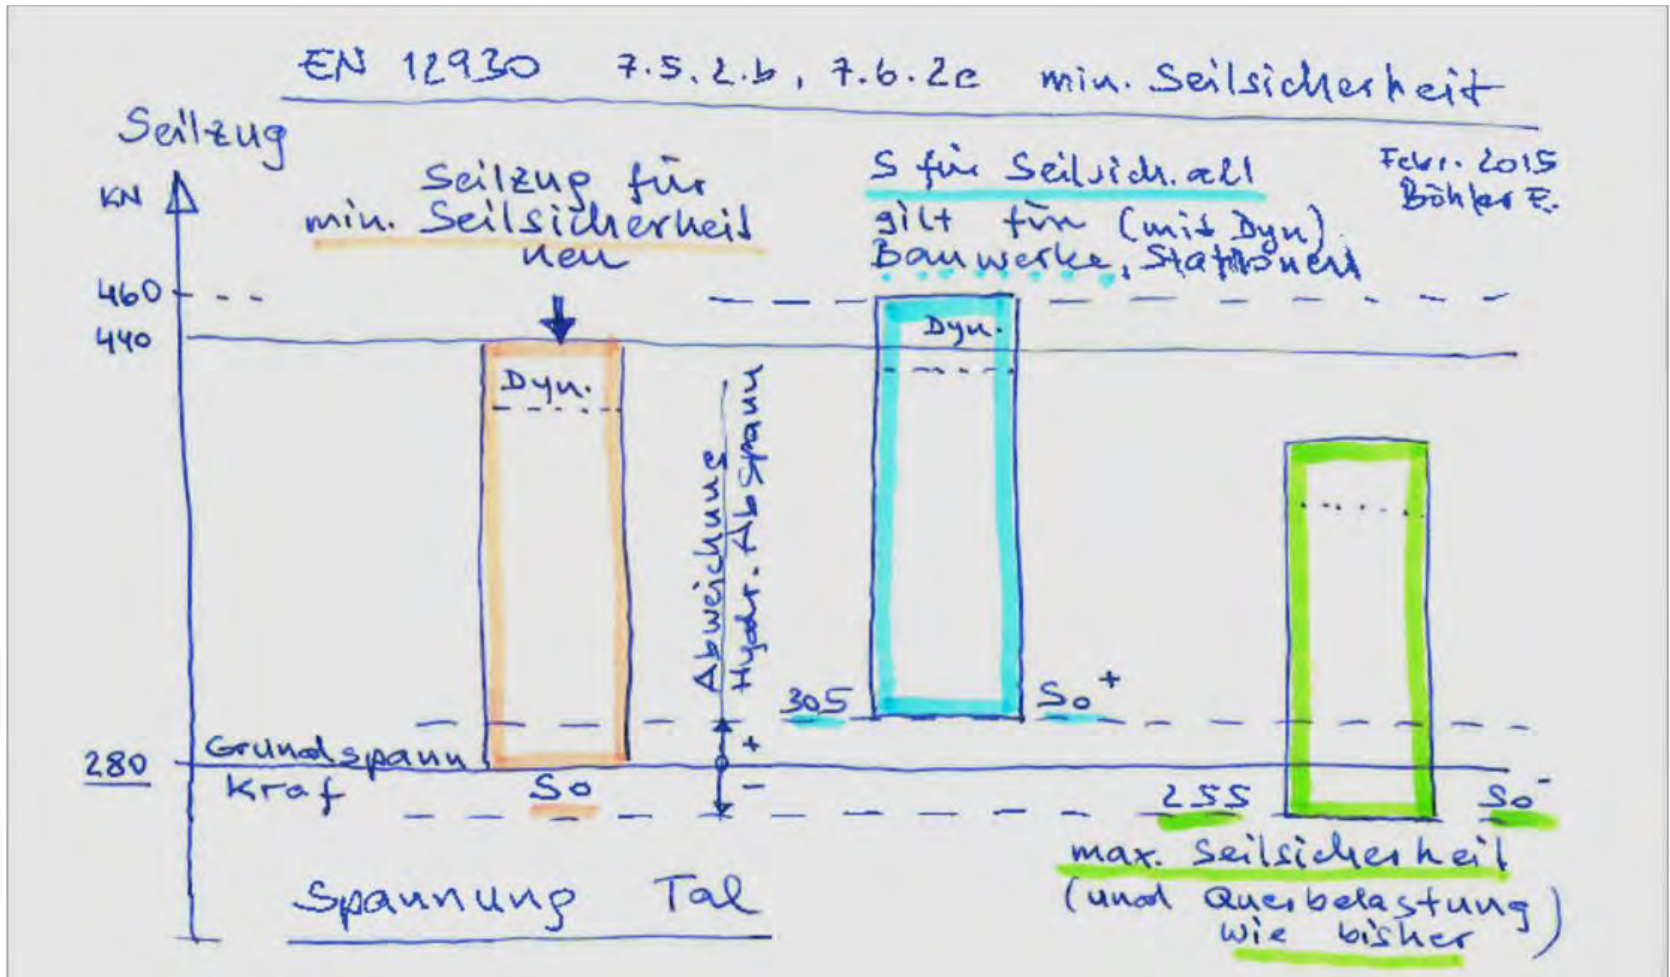 EN 12930 7.5.2.b, 7.6.2c min. Seilsicherheit
Seilzug
KN
Febr. 2015
Böhler E.
Seilzug für
min. Seilsicherheit
neu
S für Seilsich. alt
gilt für (mit Dyn)
Bauwerke, Stationen
460
440
Dyn.
Dyn.
Abweichung
Hydr. Abspann
305
So+
+
280
Grundspann
Kraf
So
-
255
So-
max. Seilsicherheit
(und Querbelastung)
wie bisher
Spannung Tal